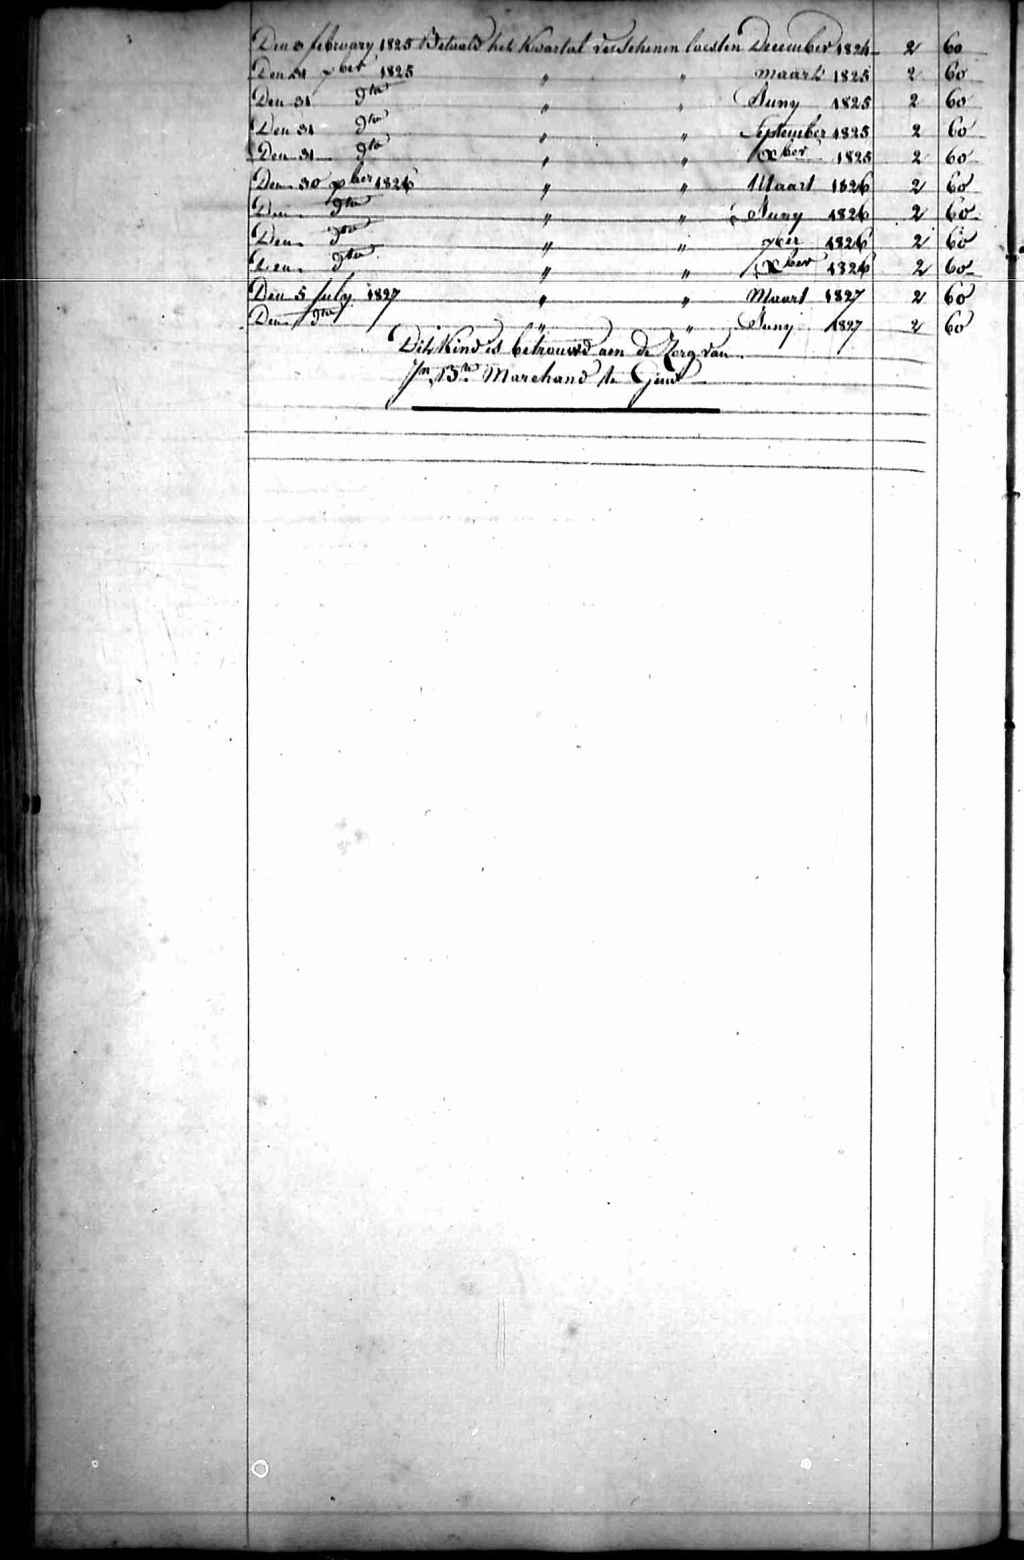 Den 3 february 1825 Betaald het kwartal verschenen laesten December 1824 2 60
Den 31 xber 1825 " " maart 1825 2 60
Den 31 dto " " Juny 1825 2 60
Den 31 dto " " September 1825 2 60
Den 31 dto " " xber 1825 2 60
Den 30 xber 1826 " " Maart 1826 2 60
Den dto " " Juny 1826 2 60
Den dto " " 7ber 1826 2 60
Den dto " " xber 1826 2 60
Den 5 July 1827 " " Maart 1827 2 60
Den dto " " Juny 1827 2 60
Dit Kind is betrouwd aen de Zorg van
Jn Bte Marchand te Gend